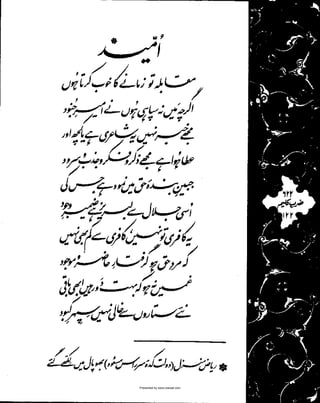 اُمّید
مقابلہ تو زمانے کا خوب کرتا ہوں
اگرچہ میں نہ سپاہی ہوں نے امیرِ جنود
مجھے خبر نہیں یہ شاعری ہے یا کچھ اور
عطا ہوا ہے مجھے ذکر و فکر و جذب و سرود
جبینِ بندۂ حق میں نمود ہے جس کی
اُسی جلال سے لبریز ہے ضمیرِ وجود
یہ کافری تو نہیں، کافری سے کم بھی نہیں
کہ مردِ حق ہو گرفتارِ حاضر و موجود
غمیں نہ ہو کہ بہت دَور ہیں ابھی باقی
نئے ستاروں سے خالی نہیں سپہرِ کبود
* ریاض منزل (دولت کدۂ سر راس مسعود) بھوپال میں لکھے گئے
۶۲۲
ضربِ کلیم
۱۲۲
Presented by www.iqbalak.com